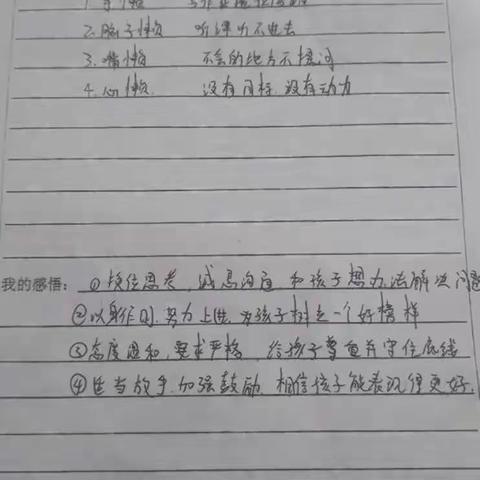 1.手懒
2.脑子懒 听课听不进去
3.嘴懒 不会的地方不提问
4.心懒 没有目标 没有动力
我的感悟: ①换位思考,诚恳沟通,和孩子想办法解决问题
②以身作则,努力上进,为孩子树立一个好榜样
③态度温和,要求严格,给孩子尊重并守住底线
④适当放手,加强鼓励,相信孩子能表现得更好.